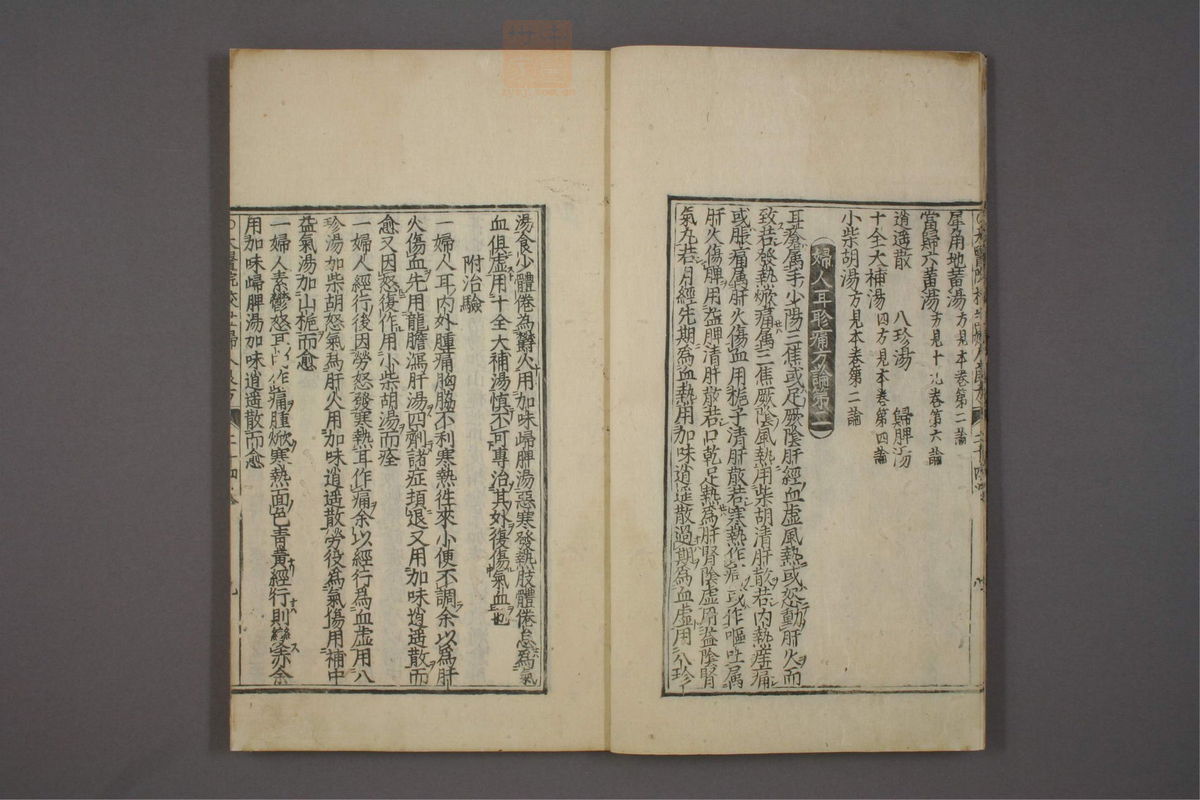 犀角地黃湯方見本卷第一論
當歸六黃湯方見十九卷第六論
逍遥散 八珍湯 歸脾湯
十全大補湯四方見本卷第四論
小柴胡湯方見本卷第二論
婦人耳聤痛方論第一
耳聤属手少陽三焦或足厥陰肝經血虚風熱或怒動肝火而
致若發熱焮痛属三焦厥陰風熱用柴胡清肝散若内熱痓痛
或脹痛属肝火傷血用梔子清肝散若寒熱作痛或作嘔吐属
肝火傷脾用益脾清肝散若口乾足熱為肝腎陰虚用益陰腎
氣丸若月經先期為血熱用加味逍遥散過期為血虚用八珍
湯食少體倦為鬱火用加味歸脾湯惡寒發熱肢體倦怠為氣
血俱虚用十全大補湯慎不可專治其外復傷氣血也
附治驗
一婦人耳内外腫痛胸脇不利寒熱徃來小便不調余以為肝
火傷血先用龍膽瀉肝湯四劑諸症頓退又用加味逍遥散而
愈又因怒復作用小柴胡湯而痊
一婦人經行後因勞怒發寒熱耳作痛余以經行為血虚用八
珍湯加柴胡怒氣為肝火用加味逍遥散勞役為氣傷用補中
益氣湯加山梔而愈
一婦人素鬱怒耳作痛腫焮寒熱面色青黃經行則變赤余
用加味歸脾湯加味逍遥散而愈